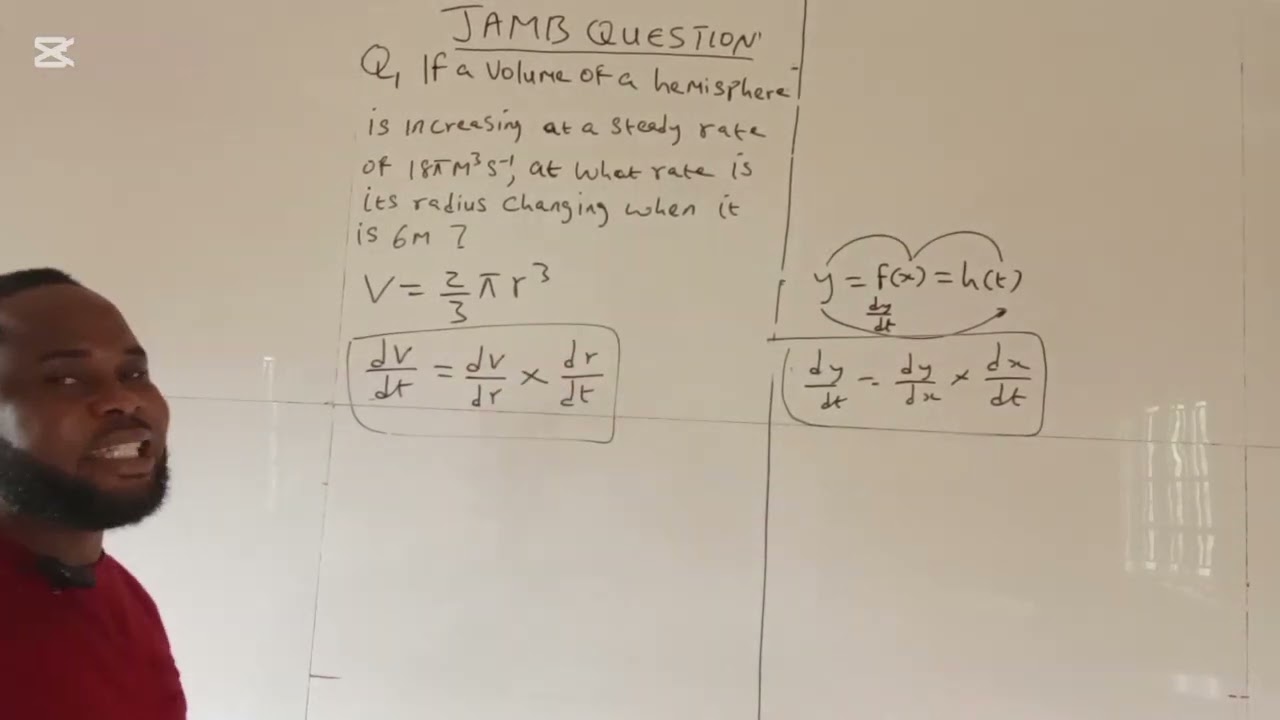 JAMB QUESTION
Q, If a Volume of a hemisphere
is increasing at a steady rate
of 18πM³S⁻¹, at what rate is
its radius changing when it
is 6M ?
V = 2/3 π r³
dV/dt = dV/dr × dr/dt
y = f(x) = h(t)
dy/dt
dy/dt = dy/dx × dx/dt